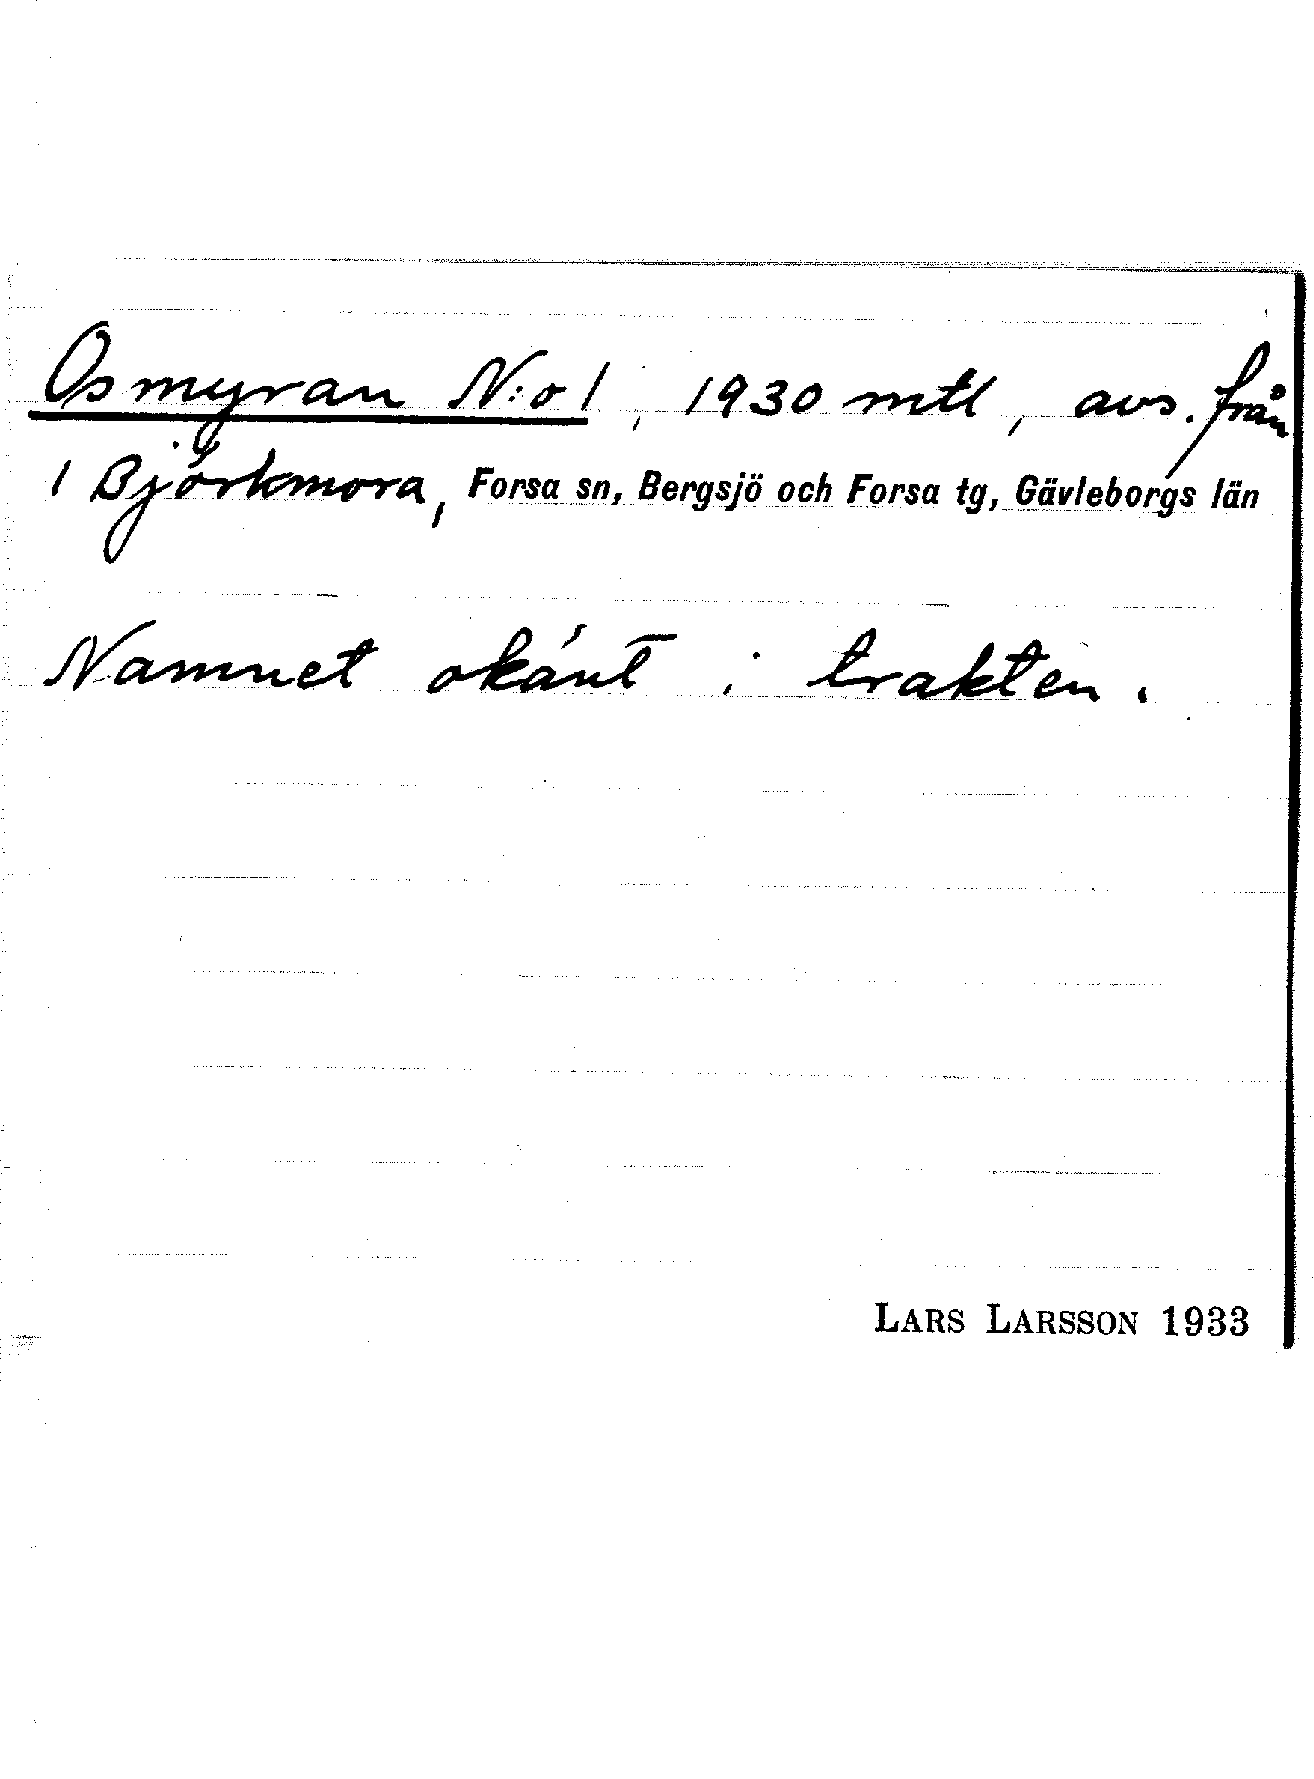 Osmyran N:o 1, 1930 mtl, avs. från
1 Björkmora, Forsa sn, Bergsjö och Forsa tg, Gävleborgs län
Namnet okänt i trakten.
LARS LARSSON 1933